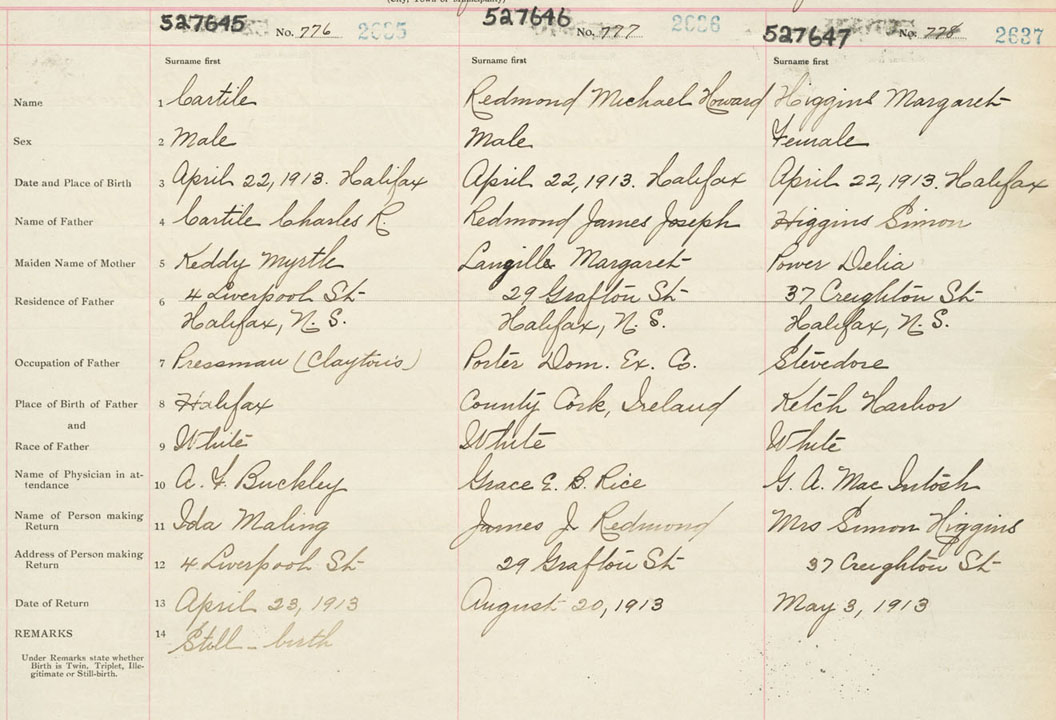 (City, Town or Municipality)
527645 No. 776 2635 527646 No. 777 2636 527647 No. 778 2637
Surname first Surname first Surname first
Name 1 Cartile Redmond Michael Howard Higgins Margaret
Sex 2 Male Male Female
Date and Place of Birth 3 April 22, 1913. Halifax April 22, 1913. Halifax April 22, 1913. Halifax
Name of Father 4 Cartile Charles R. Redmond James Joseph Higgins Simon
Maiden Name of Mother 5 Keddy Myrtle Langille Margaret Power Delia
Residence of Father 6 4 Liverpool St 29 Grafton St 37 Creighton St
Halifax, N. S. Halifax, N. S. Halifax, N. S.
Occupation of Father 7 Pressman (Clayton's) Porter Dom. Ex. Co. Stevedore
Place of Birth of Father 8 Halifax County Cork, Ireland Ketch Harbor
and
Race of Father 9 White White White
Name of Physician in at-
tendance 10 A. F. Buckley Grace E. B. Rice G. A. Mac Intosh
Name of Person making
Return 11 Ida Maling James J. Redmond Mrs Simon Higgins
Address of Person making
Return 12 4 Liverpool St 29 Grafton St 37 Creighton St
Date of Return 13 April 23, 1913 August 20, 1913 May 3, 1913
REMARKS 14 Still-birth
Under Remarks state whether
Birth is Twin, Triplet, Ille-
gitimate or Still-birth.